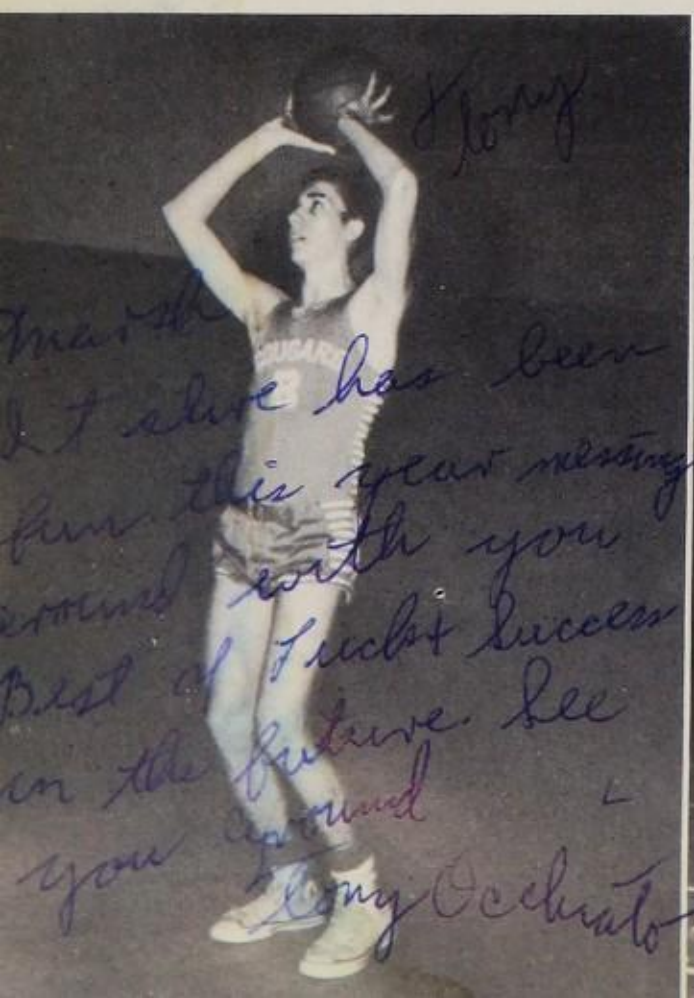 Tony
Marsh
It shure has been
fun this year messing
around with you
Best of Luck + Success
in the future. See
you around
Tony Occhiato
COUGARS